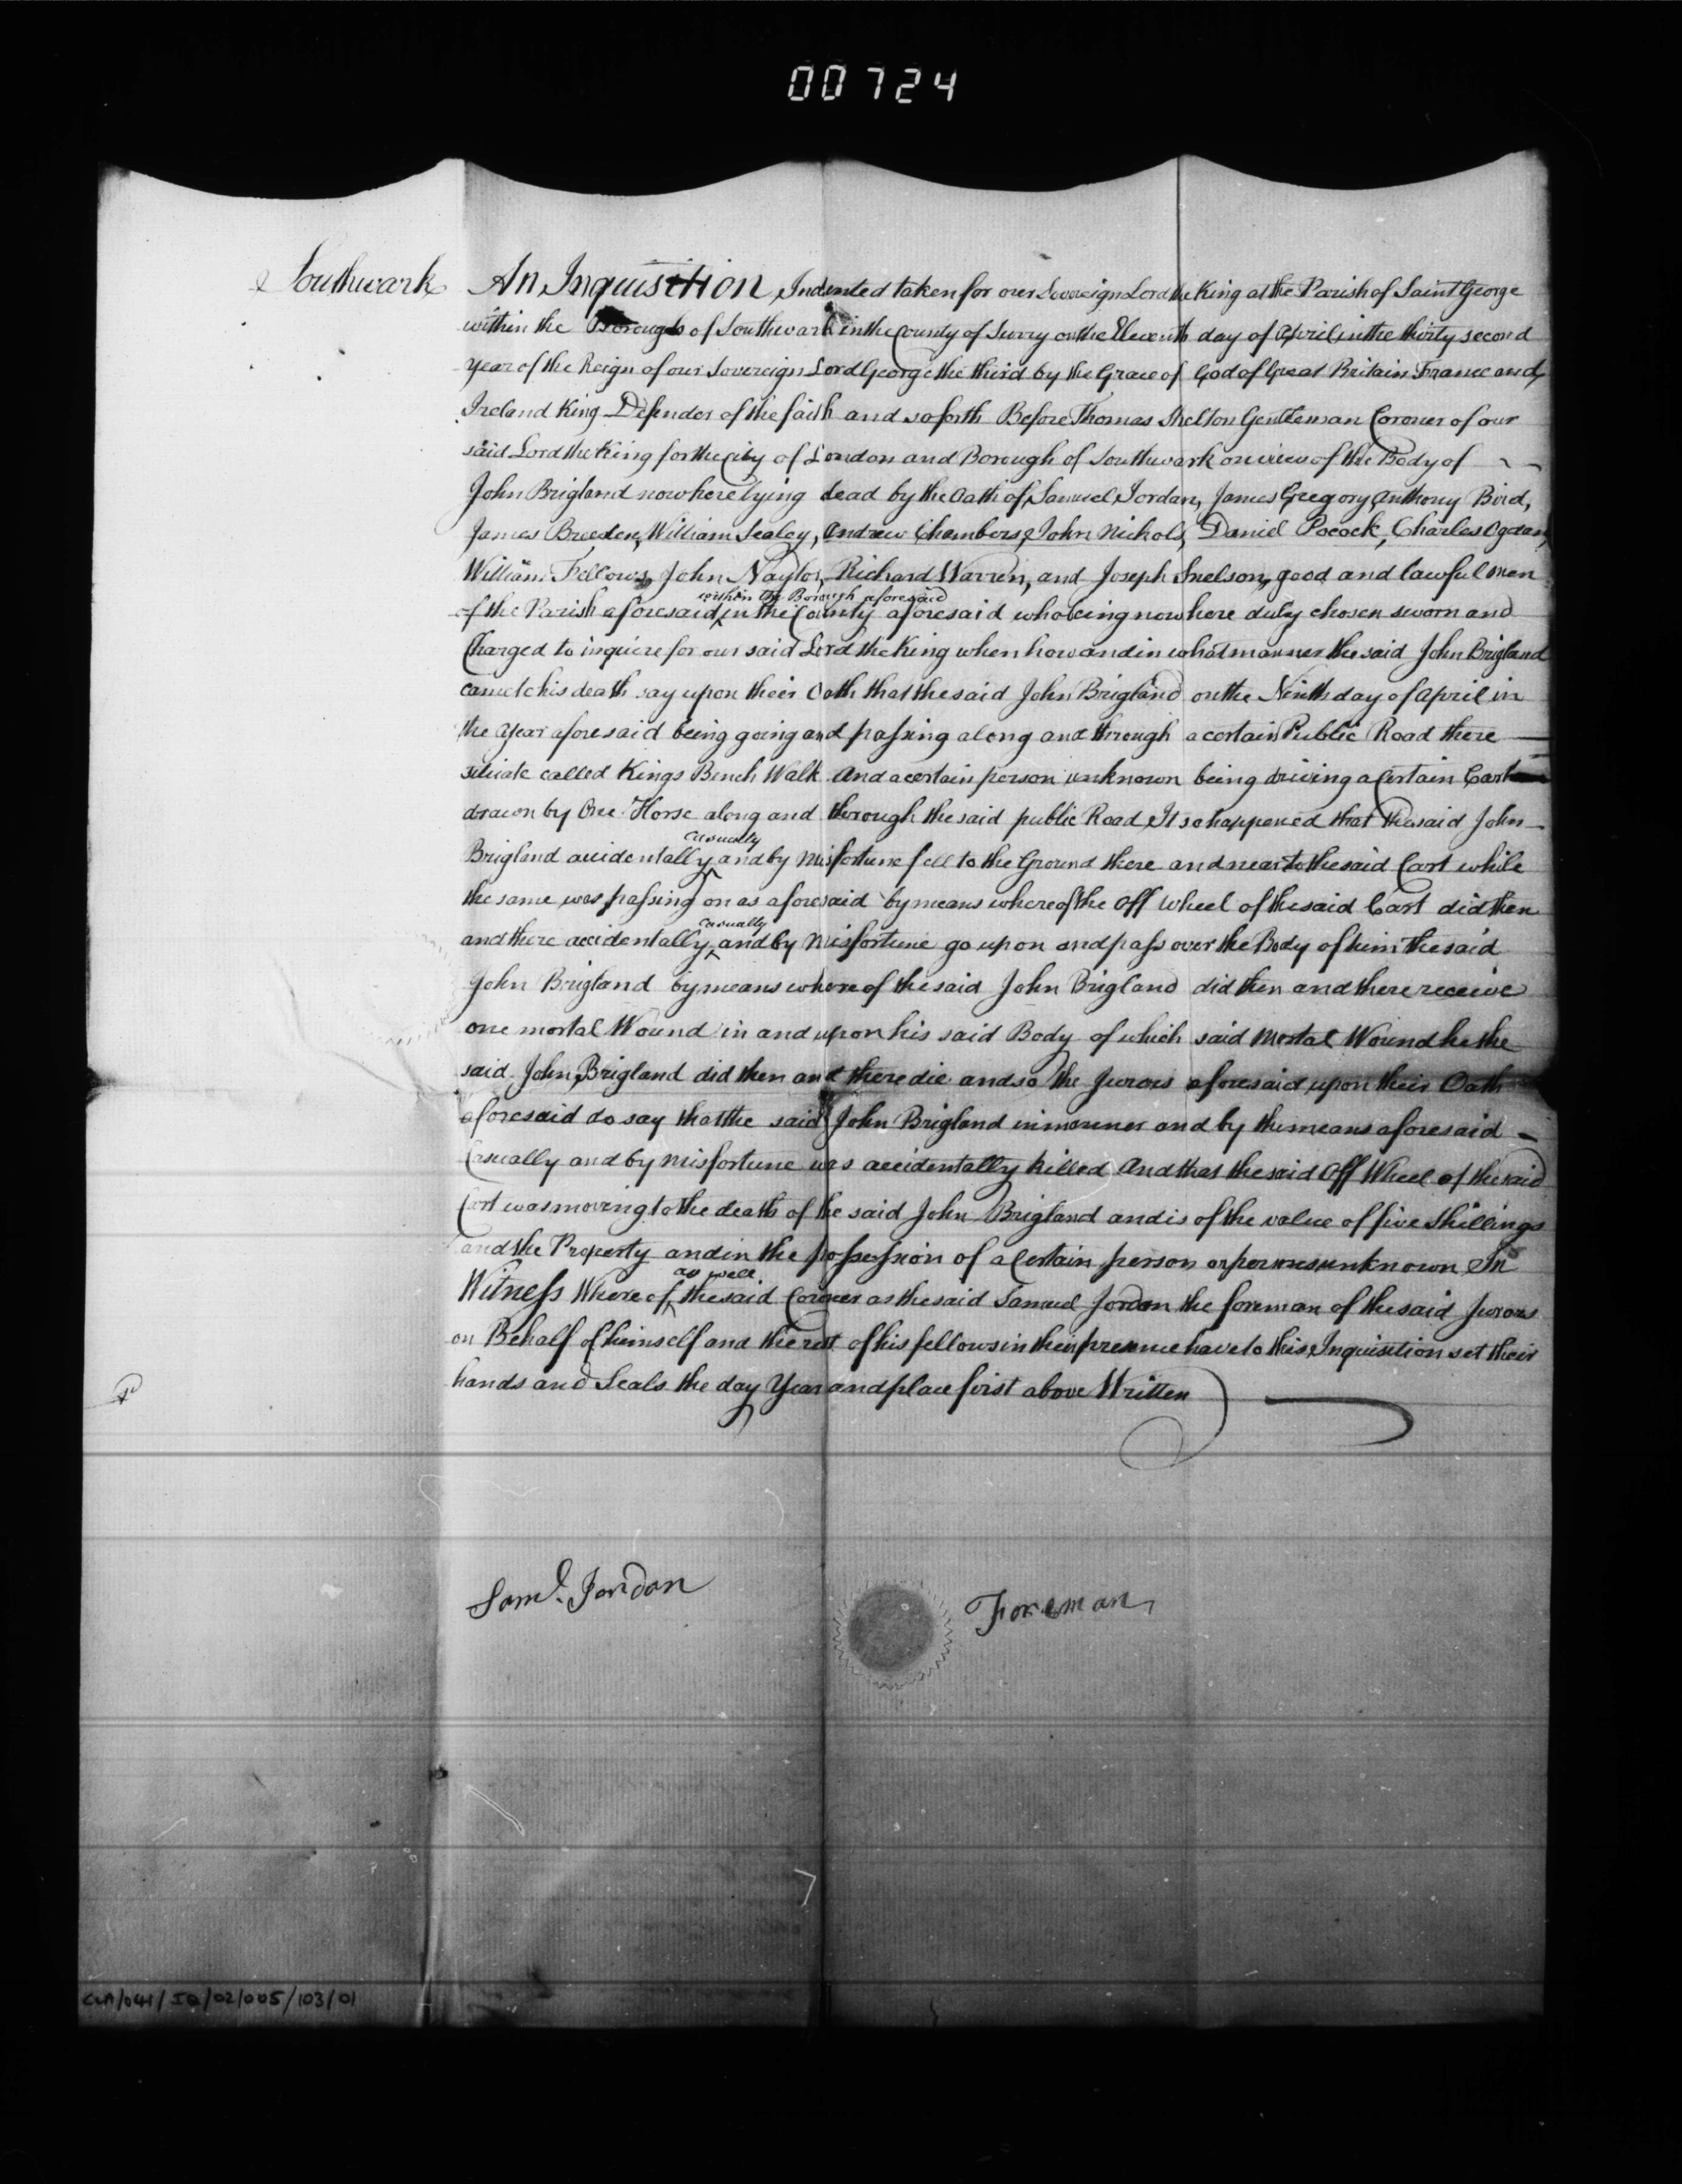 00724
Southwark An Inquisition Indented taken for our Sovereign Lord the King at the Parish of Saint George
within the Borough of Southwark in the County of Surry on the Eleventh day of April in the thirty second
Year of the Reign of our Sovereign Lord George the third by the Grace of God of Great Britain France and
Ireland King Defender of the faith and so forth Before Thomas Shelton Gentleman Coroner of our
said Lord the King for the City of London and Borough of Southwark on view of the Body of
John Brigland now here lying dead by the Oath of Samuel Jordan, James Gregory, Anthony Bird,
James Breeden, William Sealey, Andrew Chambers, John Nichols, Daniel Pocock, Charles Ogdan,
William Fellows, John Naylor, Richard Warren, and Joseph Snelson, good and lawful men
within the Borough aforesaid
of the Parish aforesaid in the County aforesaid who being now here duly chosen sworn and
Charged to inquire for our said Lord the King when how and in what manner the said John Brigland
came to his death say upon their Oath that the said John Brigland on the Ninth day of April in
the Year aforesaid being going and passing along and through a certain Public Road there
situate called Kings Bench Walk And a certain person unknown being driving a Certain Cart
drawn by One Horse along and through the said public Road It so happened that the said John
casually
Brigland accidentally and by Misfortune fell to the Ground there and near to the said Cart while
the same was passing on as aforesaid by means whereof the Off Wheel of the said Cart did then
casually
and there accidentally and by Misfortune go upon and pass over the Body of him the said
John Brigland by means whereof the said John Brigland did then and there receive
one mortal Wound in and upon his said Body of which said Mortal Wound he the
said John Brigland did then and there die and so the Jurors aforesaid upon their Oath
aforesaid do say that the said John Brigland in manner and by the means aforesaid
Casually and by misfortune was accidentally killed And that the said Off Wheel of the said
Cart was moving to the death of the said John Brigland and is of the value of five Shillings
and the Property and in the possession of a Certain person or persons unknown In
as well
Witness Whereof the said Coroner as the said Samuel Jordan the foreman of the said Jurors
on Behalf of himself and the rest of his fellows in their presence have to this Inquisition set their
hands and Seals the day Year and place first above Written
Saml. Jordan Foreman
CLA/041/IQ/02/005/103/01